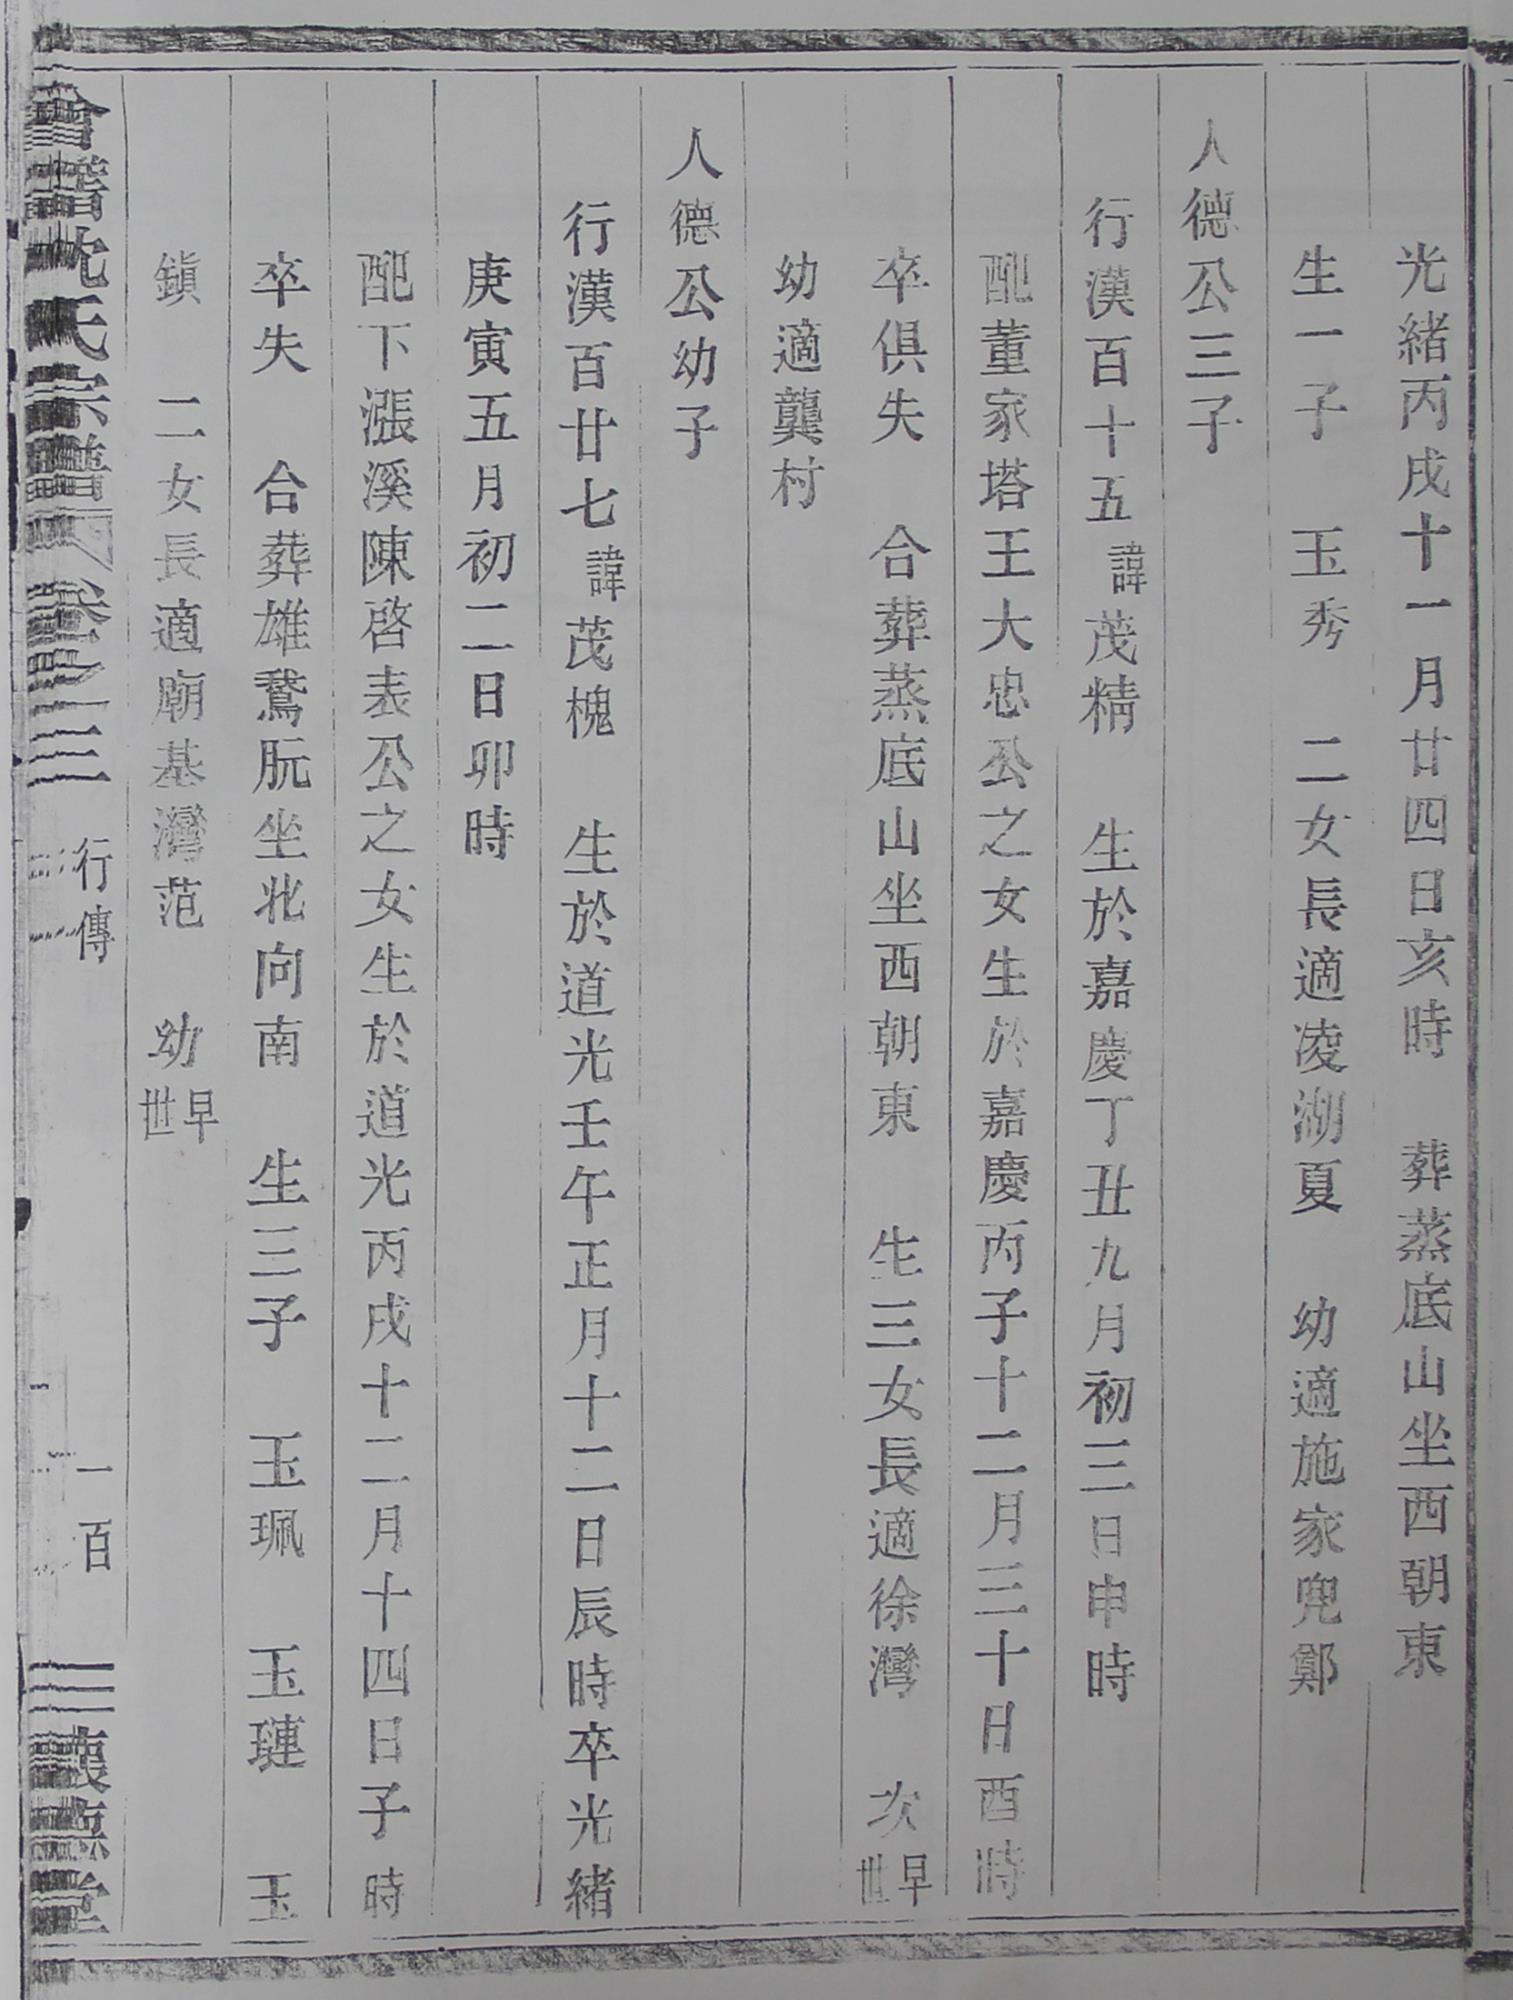 光緒丙戌十一月廿四日亥時　葬蒸底山坐西朝東
生一子　玉秀　二女長適凌湖夏　幼適施家兜鄭
人德公三子
行漢百十五諱茂精　生於嘉慶丁丑九月初三日申時
配董家塔王大忠公之女生於嘉慶丙子十二月三十日酉時
卒俱失　合葬蒸底山坐西朝東　生三女長適徐灣　次早世
幼適龔村
人德公幼子
行漢百廿七諱茂槐　生於道光壬午正月十二日辰時卒光緒
庚寅五月初二日卯時
配下漲溪陳啓表公之女生於道光丙戌十二月十四日子時
卒失　合葬雄鵞朊坐北向南　生三子　玉珮　玉璉　玉
鎮　二女長適廟基灣范　幼早世
會稽沈氏宗譜　卷三　行傳　一百　堂